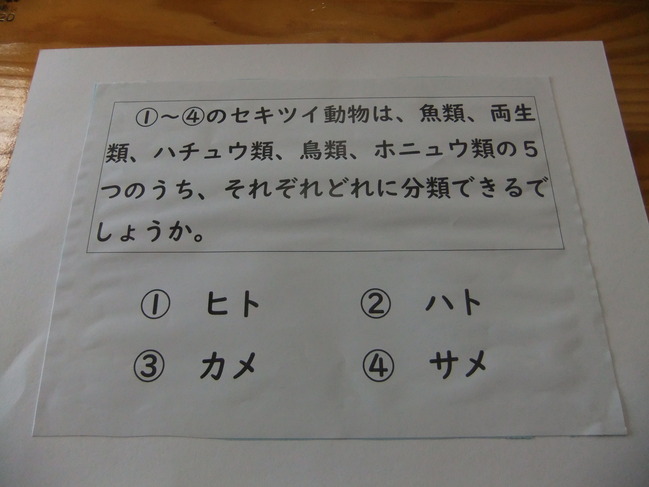 ①～④のセキツイ動物は、魚類、両生
類、ハチュウ類、鳥類、ホニュウ類の５
つのうち、それぞれどれに分類できるで
しょうか。
① ヒト ② ハト
③ カメ ④ サメ